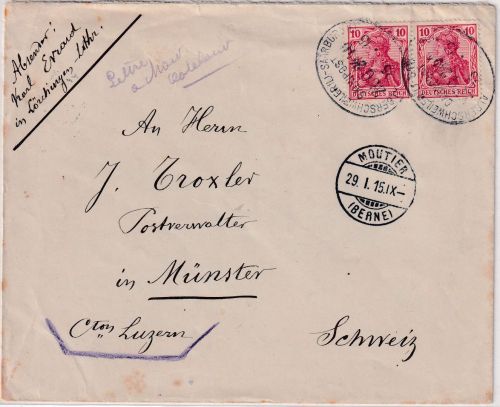 Absender:
Karl Evrard
in Lörchingen Lothr.
Lettre
10 10
DEUTSCHES REICH DEUTSCHES REICH
MOUTIER
29. I. 15. IX–
(BERNE)
An Herrn
J. Troxler
Postverwalter
in Münster
Cton Luzern
Schweiz